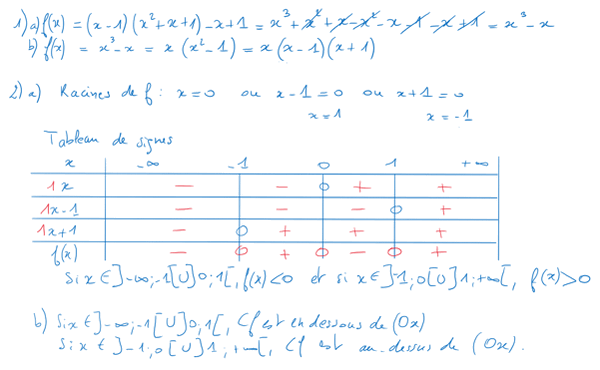 1) a) f(x) = (x-1)(x²+x+1)-x+1 = x³+x²+x-x²-x-1-x+1 = x³-x
b) f(x) = x³-x = x(x²-1) = x(x-1)(x+1)
2) a) Racines de f : x=0 ou x-1=0 ou x+1=0
x=1 x=-1
Tableau de signes
x -∞ -1 0 1 +∞
1x - - 0 + +
1x-1 - - - 0 +
1x+1 - 0 + + +
f(x) - 0 + 0 - 0 +
Si x∈]-∞;-1[U]0;1[, f(x)<0 et si x∈]-1;0[U]1;+∞[, f(x)>0
b) Si x∈]-∞;-1[U]0;1[, Cf est en dessous de (Ox)
Si x∈]-1;0[U]1;+∞[, Cf est au-dessus de (Ox).